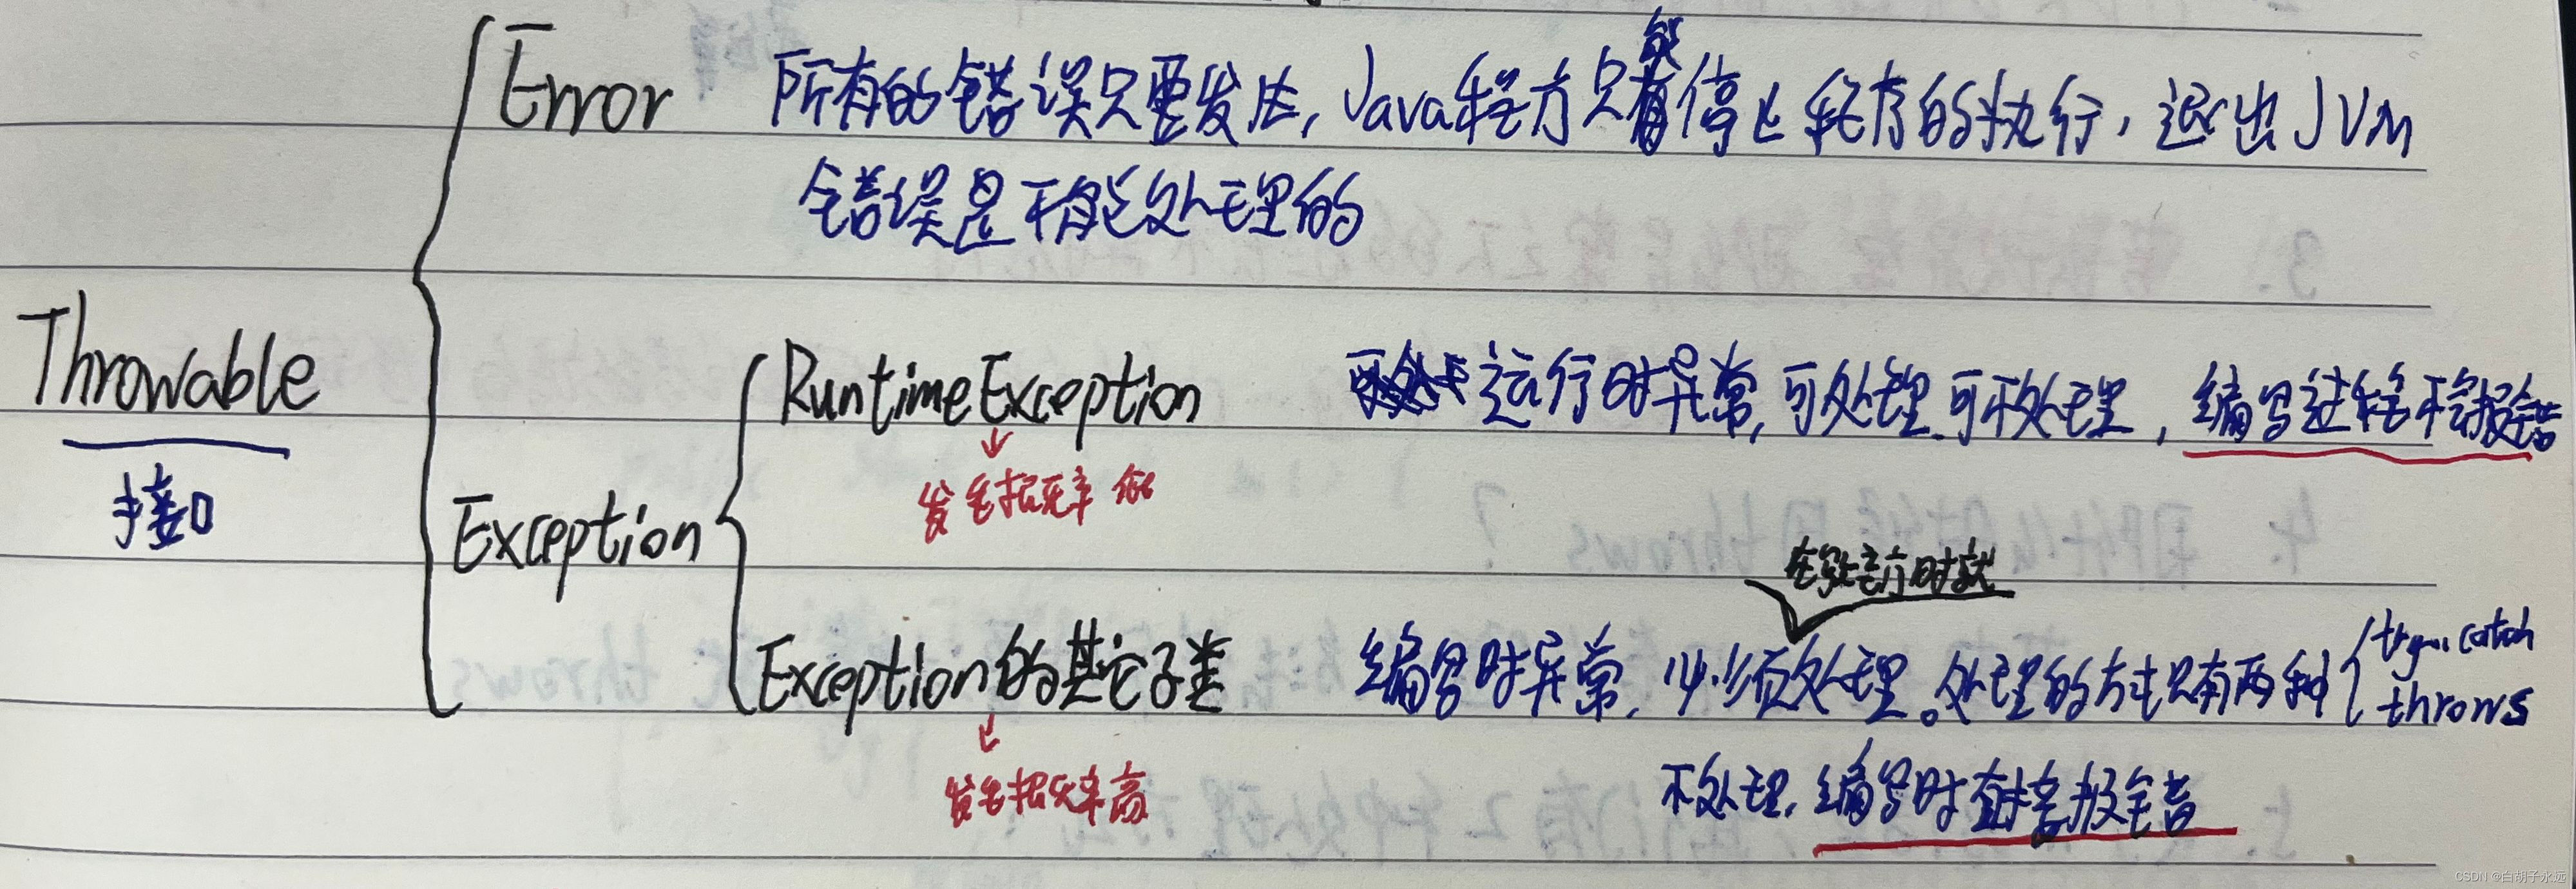 Error 所有的错误只要发生,Java程序只能停止程序的执行,退出JVM
错误是不能处理的
Throwable
接口
RuntimeException 运行时异常,可处理、可不处理,编写过程不会报错
发生概率低
Exception
在编写时就
Exception的其它子类 编写时异常,必须处理。处理的方式只有两种 try...catch
throws
发生概率高
不处理,编写时直接报错
CSDN @白胡子永远